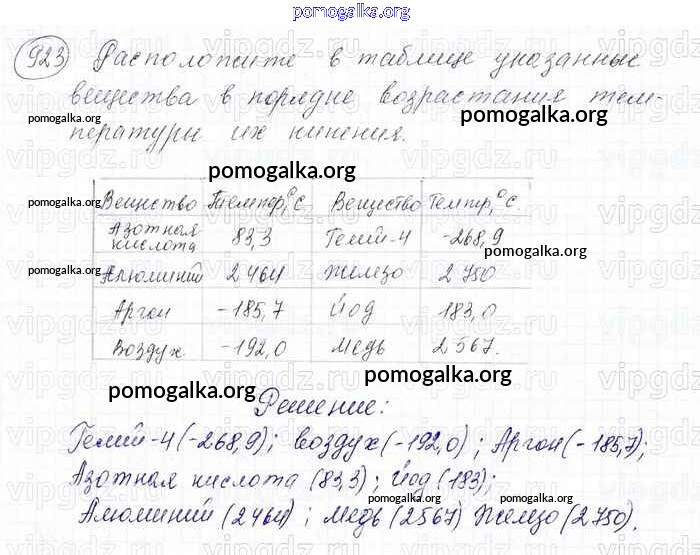 pomogalka.org
923 Расположите в таблице указанные
вещества в порядке возрастания тем-
pomogalka.org pomogalka.org
пературы их кипения.
pomogalka.org
Вещество Темпер,°С Вещество Темпер,°С.
Азотная кислота 83,3 Гелий-4 -268,9
pomogalka.org
Алюминий 2464 Железо 2750
Аргон -185,7 Йод 183,0
Воздух. -192,0 Медь 2567.
pomogalka.org pomogalka.org
Решение:
Гелий-4(-268,9); воздух(-192,0); Аргон(-185,7);
Азотная кислота (83,3); Йод(183);
pomogalka.org pomogalka.org
Алюминий(2464); Медь(2567) Железо(2750).